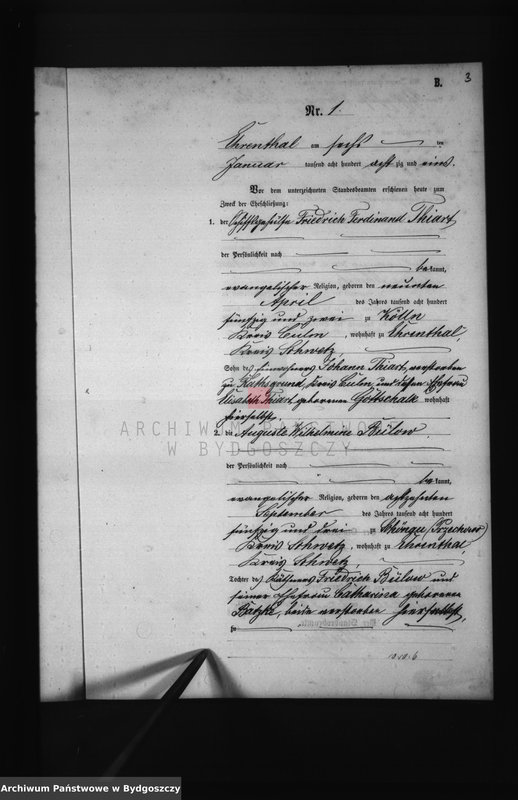 B. 3
Nr. 1.
Ehrenthal am sechs ten
Januar tausend acht hundert acht zig und eins.
Vor dem unterzeichneten Standesbeamten erschienen heute zum
Zweck der Eheschließung:
1. der Friedrich Ferdinand Thiart
der Persönlichkeit nach
be kannt,
evangelischer Religion, geboren den neunten
April des Jahres tausend acht hundert
fünfzig und zwei zu Kölln
Kreis Culm, wohnhaft zu Ehrenthal,
Kreis Schwetz
Sohn des Johann Thiart, verstorben
zu Kreis Culm und dessen Ehefrau
Elisabeth Thiart geborenen Gottschalk wohnhaft
hierselbst.
2. die Auguste Wilhelmine Bülow
ARCHIWUM PAŃSTWOWE
W BYDGOSZCZY
der Persönlichkeit nach
be kannt,
evangelischer Religion, geboren den achtzehnten
September des Jahres tausend acht hundert
fünfzig und drei zu
Kreis Schwetz, wohnhaft zu Ehrenthal,
Kreis Schwetz,
Tochter des Käthners Friedrich Bülow und
seiner Ehefrau Catharina geborenen
beide verstorben hierselbst,
zu
Archiwum Państwowe w Bydgoszczy